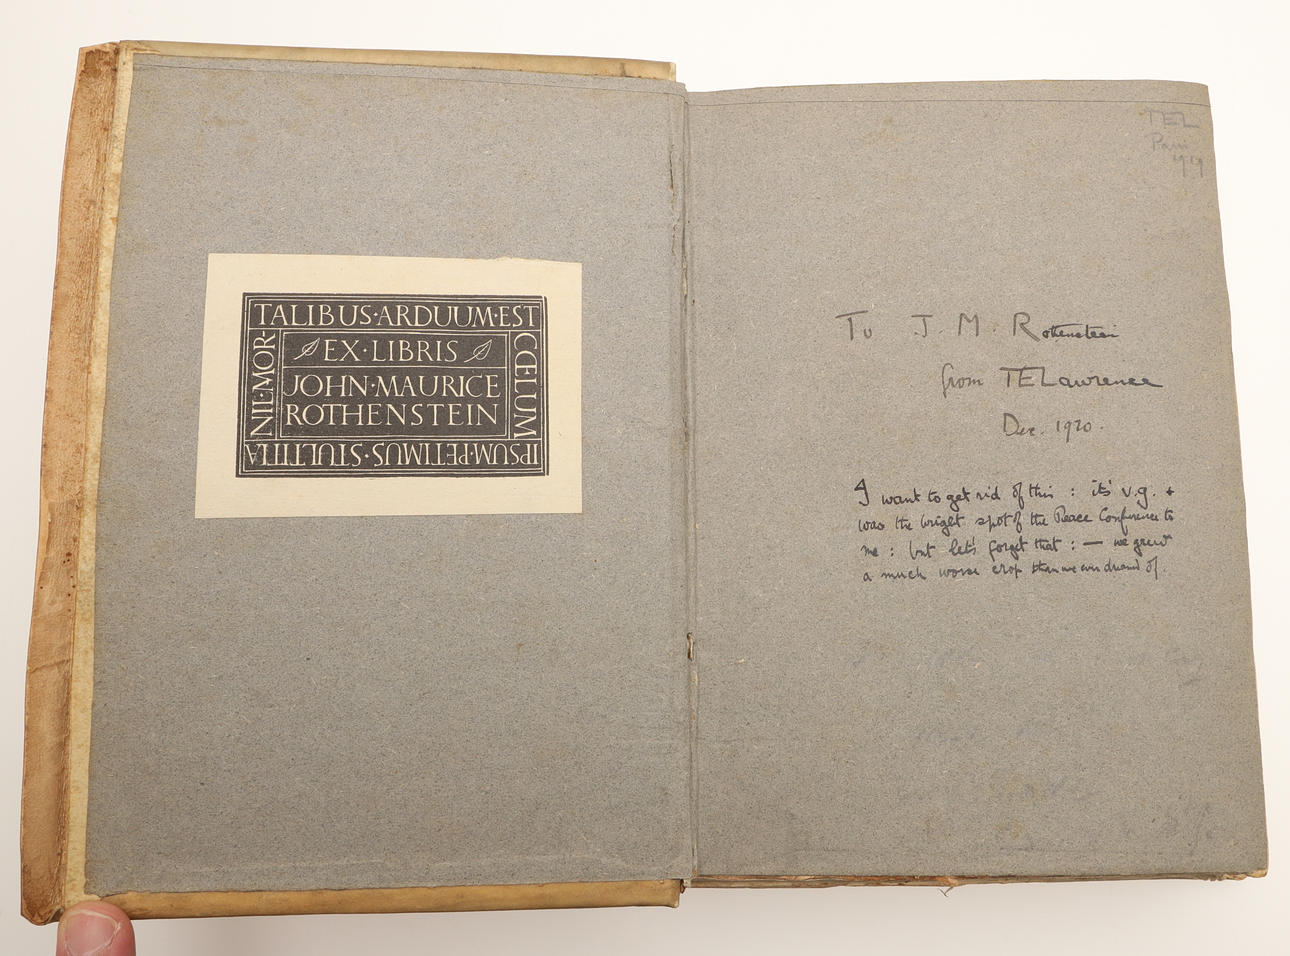 TALIBUS·ARDUUM·EST
CŒLUM
IPSUM·PETIMUS·STULTITIA
NIE·MOR-
EX·LIBRIS
JOHN·MAURICE
ROTHENSTEIN
TEL
Paris
1919
To J. M. Rothenstein
from TELawrence
Dec. 1920.
I want to get rid of this: it's v.g. +
was the bright spot of the Peace Conference to
me: but let's forget that: — we grew
a much worse crop than we ever dreamed of.